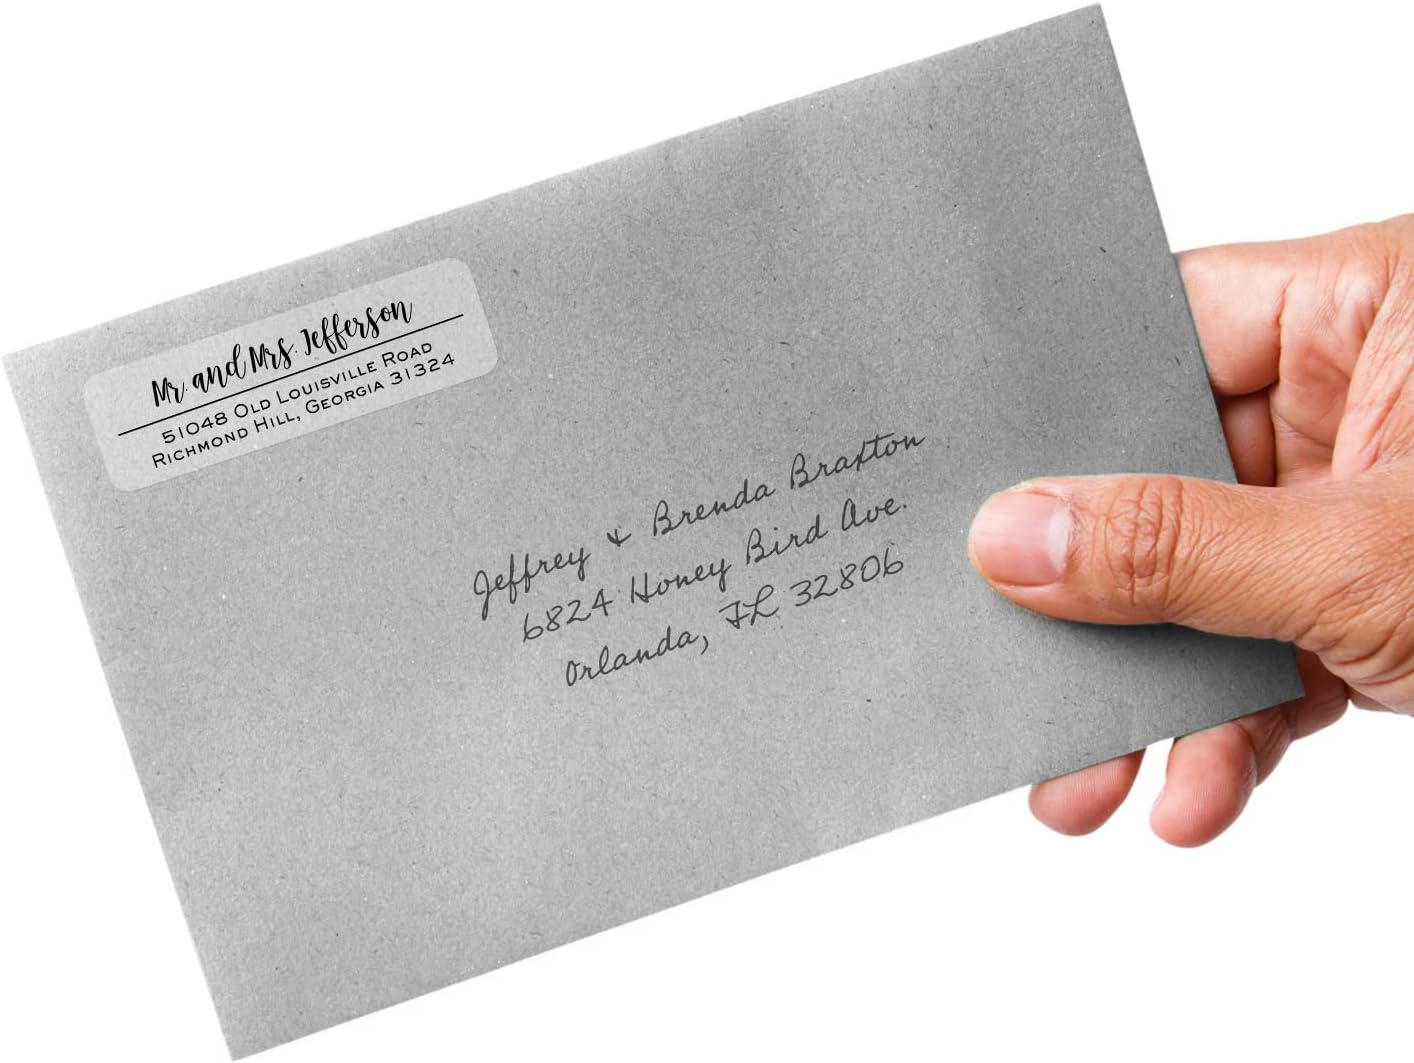 Mr. and Mrs. Jefferson
51048 Old Louisville Road
Richmond Hill, Georgia 31324
Jeffrey & Brenda Braxton
6824 Honey Bird Ave.
Orlanda, FL 32806